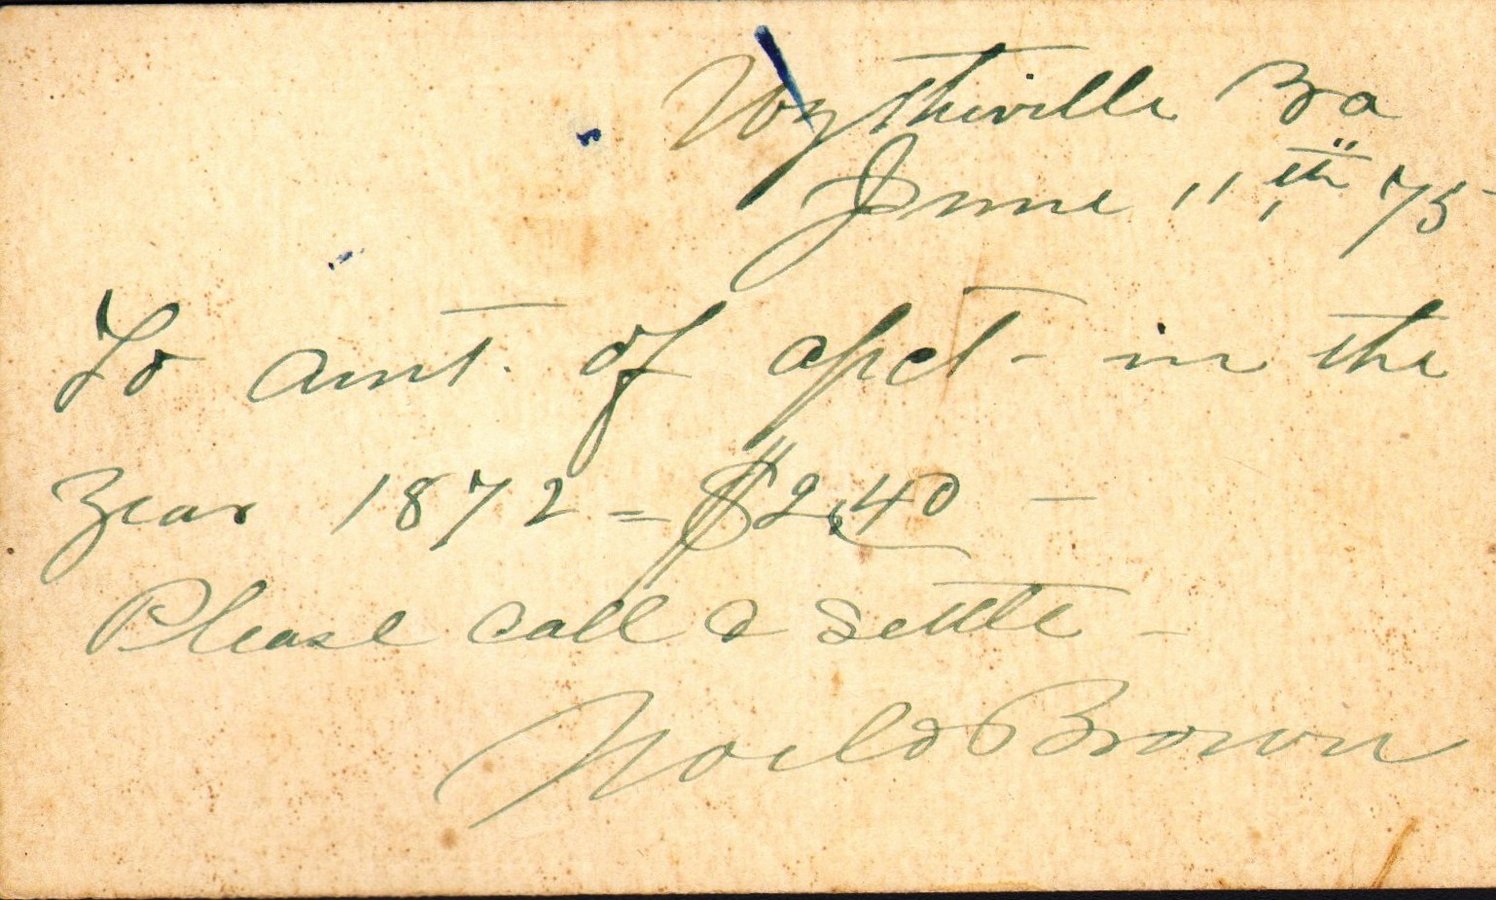 Wytheville Va
June 11th 75
To amt. of apct - in the
year 1872 = $2,40 -
Please call & settle -
Brown